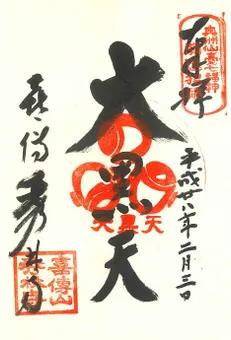 奉拝
奥州仙臺七福神
大黒天
大黒天
平成廿八年二月三日
喜傳
秀林寺
喜傳山
秀林寺